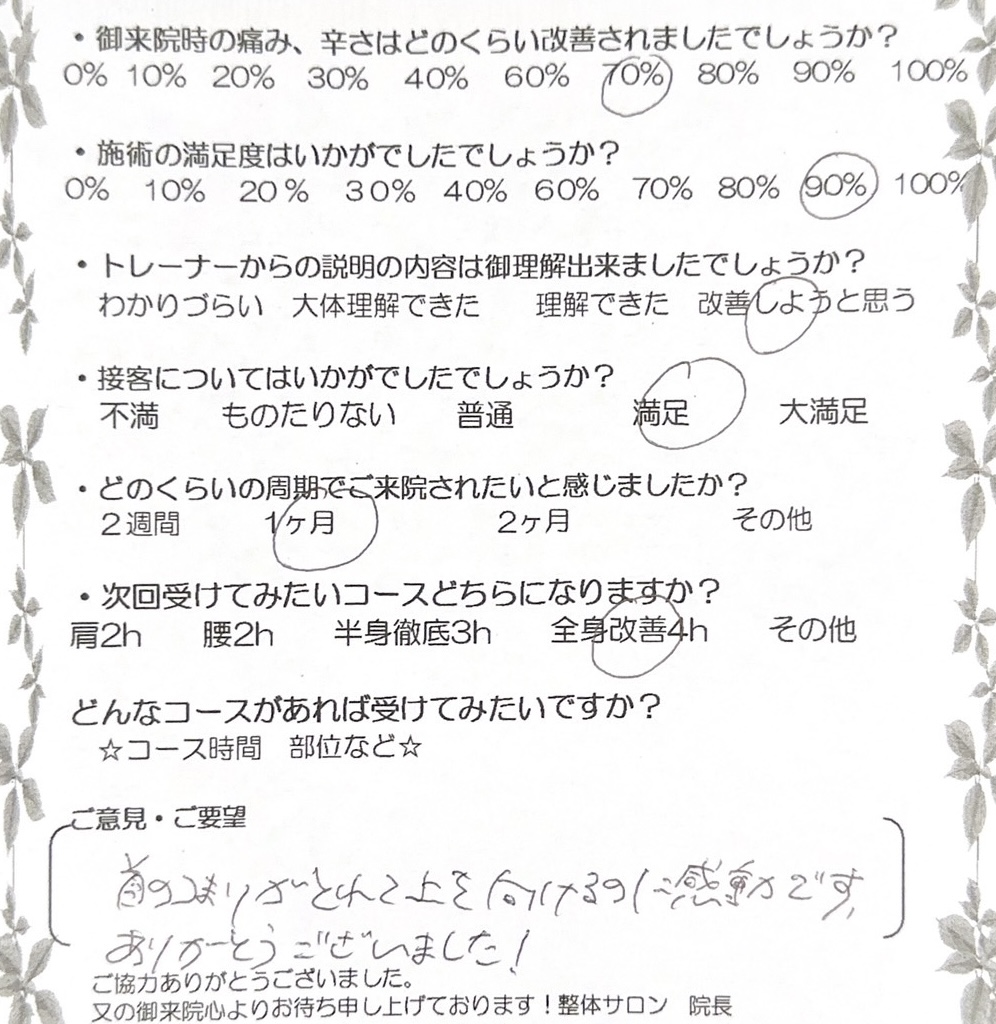 ・御来院時の痛み、辛さはどのくらい改善されましたでしょうか？
0% 10% 20% 30% 40% 60% 70% 80% 90% 100%
・施術の満足度はいかがでしたでしょうか？
0% 10% 20% 30% 40% 60% 70% 80% 90% 100%
・トレーナーからの説明の内容は御理解出来ましたでしょうか？
わかりづらい 大体理解できた 理解できた 改善しようと思う
・接客についてはいかがでしたでしょうか？
不満 ものたりない 普通 満足 大満足
・どのくらいの周期でご来院されたいと感じましたか？
2週間 1ヶ月 2ヶ月 その他
・次回受けてみたいコースどちらになりますか？
肩2h 腰2h 半身徹底3h 全身改善4h その他
どんなコースがあれば受けてみたいですか？
☆コース時間 部位など☆
ご意見・ご要望
首のつまりがとれて上を向けるのに感動です。
ありがとうございました！
ご協力ありがとうございました。
又の御来院心よりお待ち申し上げております！整体サロン 院長